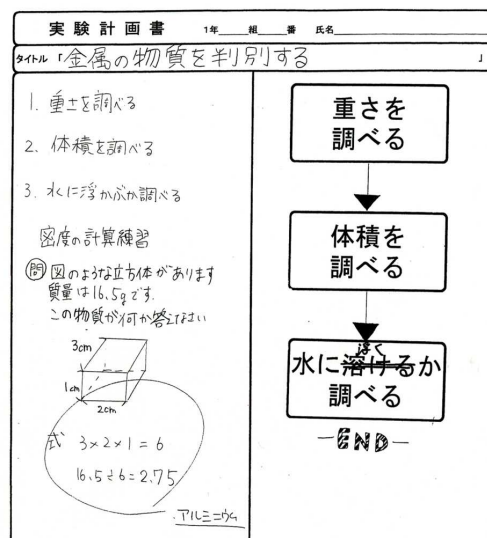 実験計画書 1年 組 番 氏名
タイトル「金属の物質を判別する」
1. 重さを調べる
2. 体積を調べる
3. 水に浮かぶか調べる
密度の計算練習
問 図のような立方体があります
質量は16.5gです.
この物質が何か答えなさい
3cm
1cm
2cm
式 3×2×1=6
16.5÷6=2.75
アルミニウム
重さを
調べる
体積を
調べる
浮く
水に溶けるか
調べる
-END-